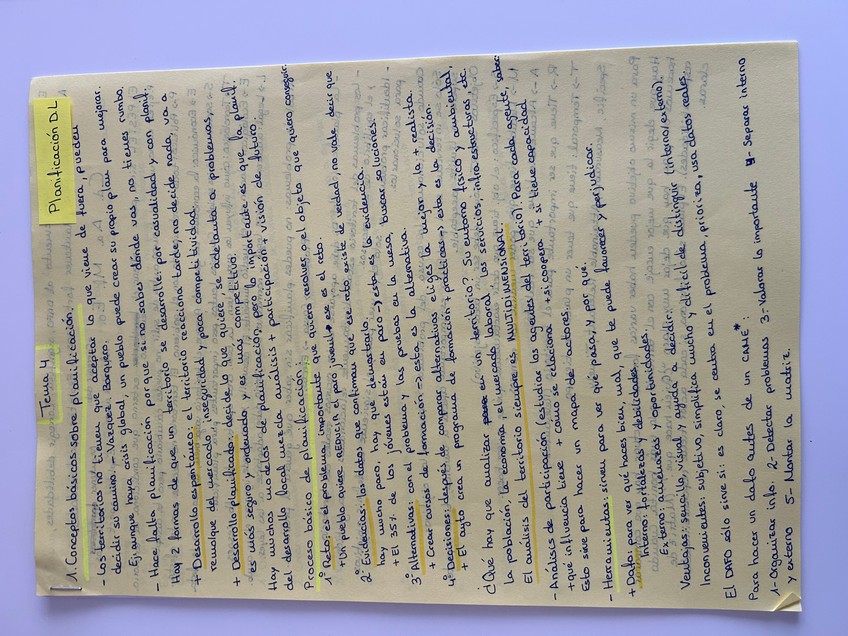 Planificación D.L
Tema 4
1. Conceptos básicos sobre planificación.
- Los territorios no tienen que aceptar lo que viene de fuera, pueden
decidir su camino. - Vazquez Barquero.
Ej: aunque haya crisis global, un pueblo puede crear su propio plan para mejorar.
- Hace falta planificación porque si no sabes dónde vas, no tienes rumbo.
Hay 2 formas de que un territorio se desarrolle: por casualidad y con planif.
+ Desarrollo espontáneo: el territorio reacciona tarde, no decide nada va a
remolque del mercado, inseguridad y poca competitividad.
+ Desarrollo planificado: decide lo que quiere, se adelanta a problemas,
es más seguro y ordenado y es más competitivo.
Hay muchos modelos de planificación, pero lo importante es que la planif.
del desarrollo local mezcla análisis + participación + visión de futuro.
Proceso básico de planificación
1º Reto: es el problema importante que quiero resolver o el objeto que quiero conseguir.
+ Un pueblo quiere reducir el paro juvenil → ese es el reto.
2º Evidencias: los datos que confirman que ese reto, existe de verdad, no vale decir que
hay mucho paro, hay que demostrarlo.
+ El 35% de los jóvenes están en paro → esta es la evidencia.
3º Alternativas: con el problema y las pruebas en la mesa, buscar soluciones.
- Crear cursos de formación → esta es la alternativa.
4º Decisiones: después de comparar alternativas eliges la mejor y la + realista.
+ El ayto crea un programa de formación + prácticas → esta es la decisión
¿Qué hay que analizar en un territorio? Su entorno físico y ambiental,
la población, la economía, el mercado laboral, los servicios, infraestructuras, etc.
El análisis del territorio siempre es MULTIDIMENSIONAL.
- Análisis de participación (estudiar los agentes del territorio). Para cada agente, saber:
+ qué influencia tiene + cómo se relaciona + si coopera + si tiene capacidad
Esto sirve para hacer un mapa de actores.
- Herramientas: sirven para ver qué pasa, y por que.
+ Dafo: para ver qué haces bien, mal, que te puede favorecer y perjudicar.
Interno: fortalezas y debilidades.
Externo: amenazas y oportunidades.
Ventajas: sencillo, visual y ayuda a decidir.
Inconvenientes: subjetivo, simplifica mucho y difícil de distinguir (interno/externo).
El DAFO sólo sirve si: es claro, se centra en el problema, prioriza, usa datos reales.
Para hacer un dafo antes de un CAME*:
1- Organizar info. 2- Detectar problemas 3- Valorar lo importante 4- Separar interno
y externo 5- Montar la matriz.